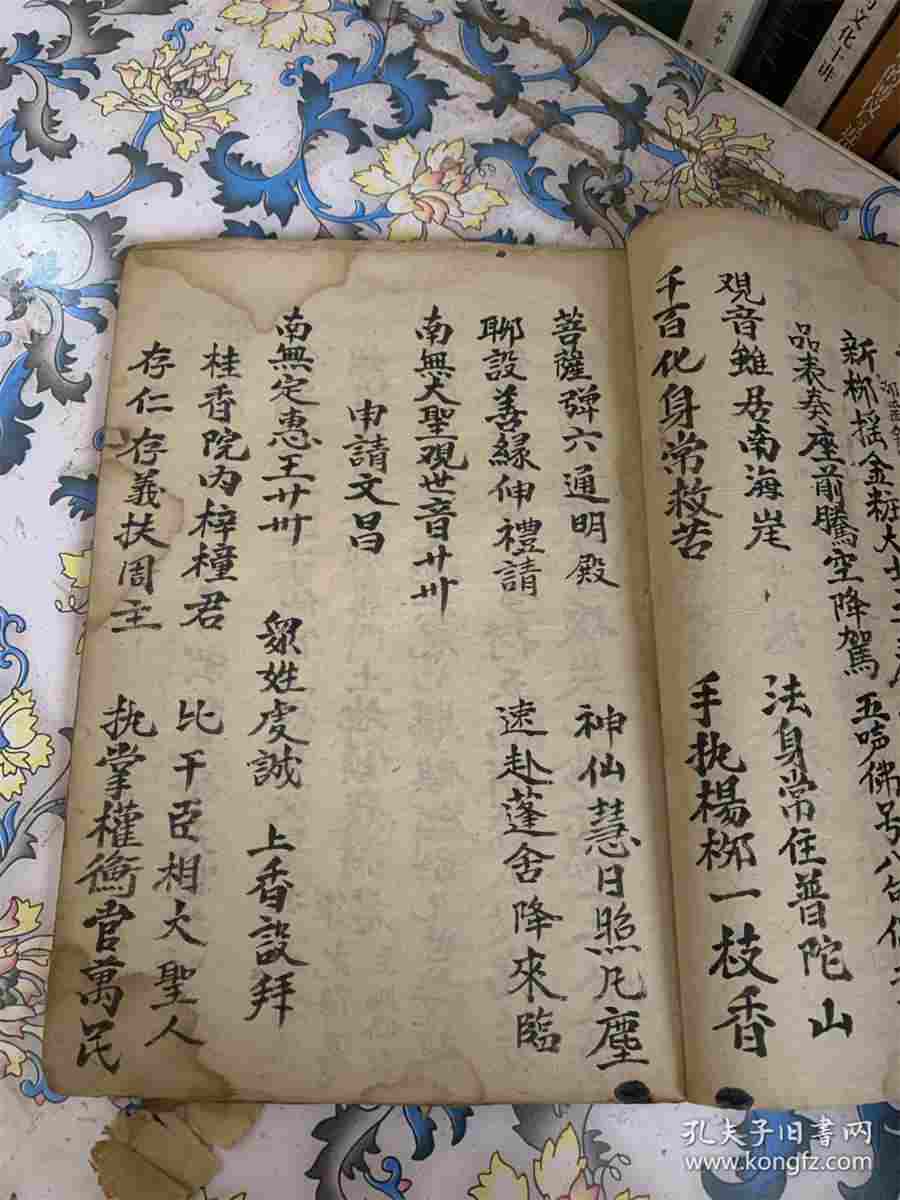 新栁揺金粧大士
品表奏座前騰空降駕 五唥佛号八句
观音雖居南海崖 法身常住普陀山
千百化身常救苦 手执楊栁一枝香
菩薩弹六通明殿 神仙慧日照凡塵
聊設善緣伸禮請 速赴蓬舍降來臨
南無大聖观世音廿卅
申請文昌
南無定惠王廿卅 衆姓虔誠 上香設拜
桂香院内梓橦君 比干臣相大聖人
存仁存義扶周主 执掌權衡官萬民
文化十讲
孔夫子旧書网
www.kongfz.com